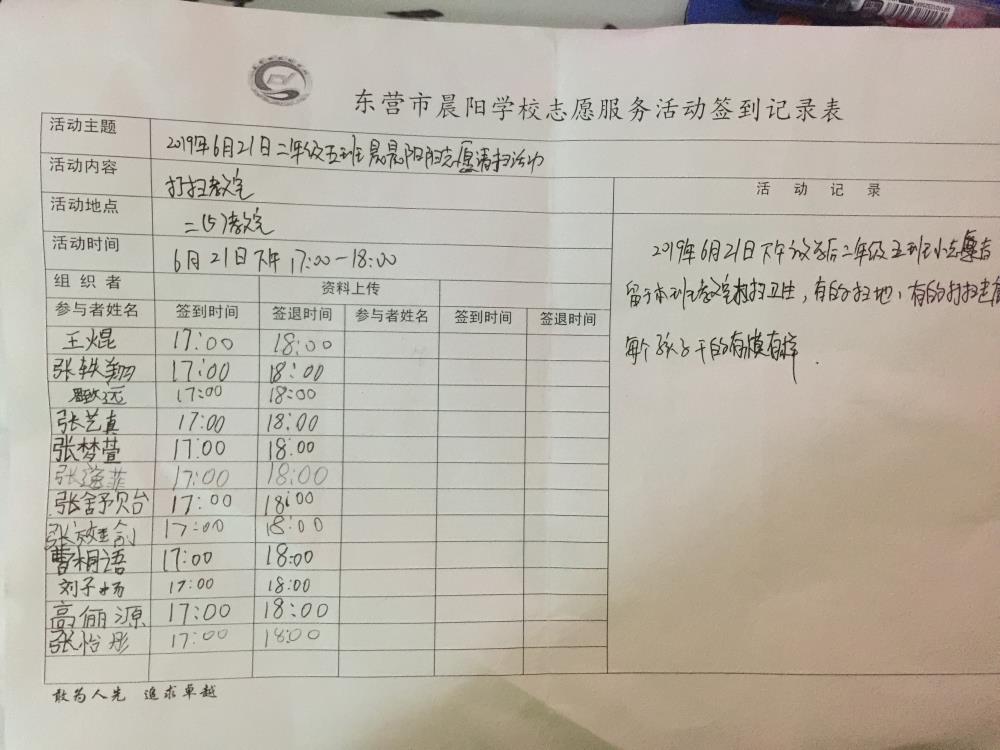 东营市晨阳学校志愿服务活动签到记录表
活动主题 2019年6月21日二年级五班晨阳志愿清扫活动
活动内容 打扫教室
活动记录
活动地点 二(5)教室
活动时间 6月21日下午17:00-18:00
2019年6月21日下午放学后二年级五班小志愿者
留于本班教室打扫卫生,有的扫地,有的打扫走廊
每个孩子干的有模有样.
组织者 资料上传
参与者姓名 签到时间 签退时间 参与者姓名 签到时间 签退时间
王焜 17:00 18:00
张轶翔 17:00 18:00
远 17:00 18:00
张艺真 17:00 18:00
张梦萱 17:00 18:00
张菲 17:00 18:00
张舒贻 17:00 18:00
张 17:00 18:00
曹桐语 17:00 18:00
刘子杨 17:00 18:00
高俪源 17:00 18:00
张怡彤 17:00 18:00
敢为人先 追求卓越